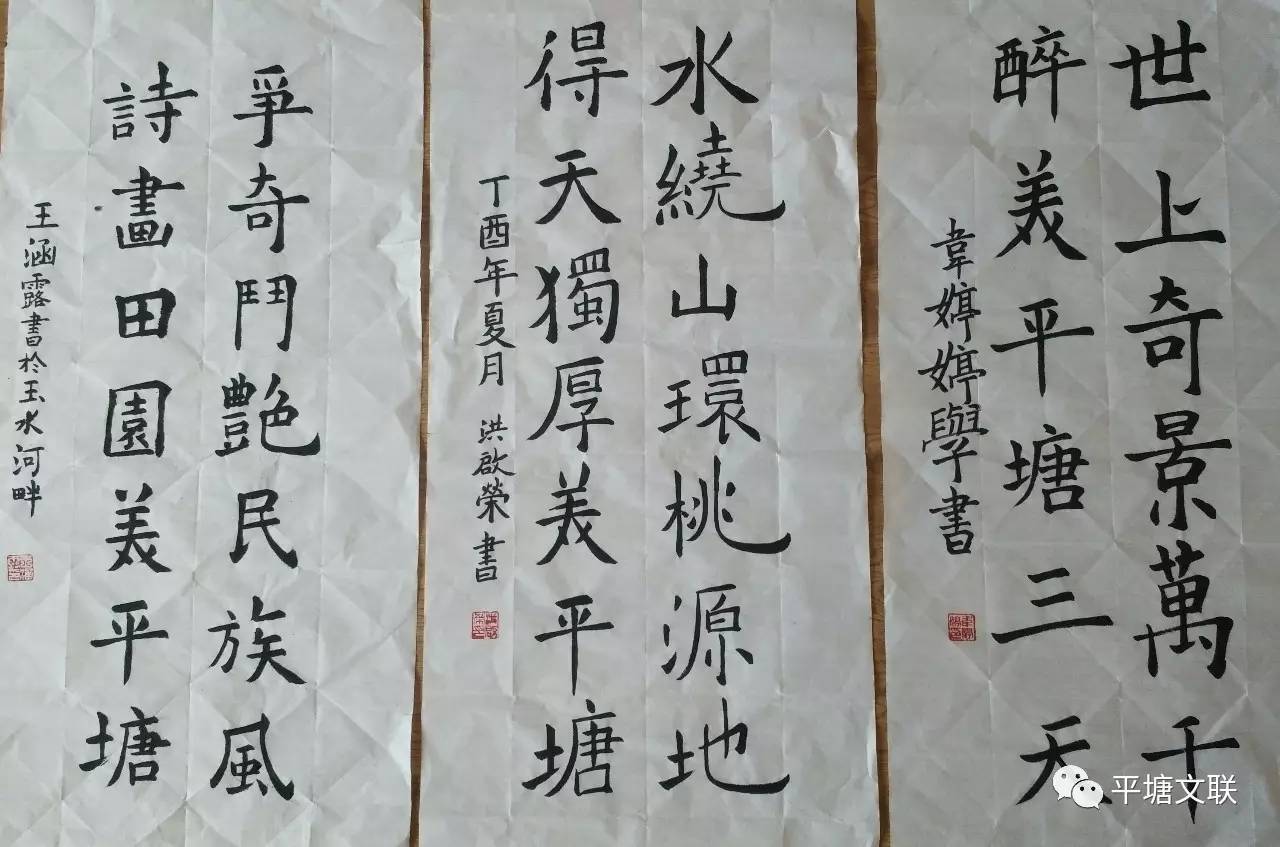 世上奇景萬千
醉美平塘三天
韋婷婷學書
水繞山環桃源地
得天獨厚美平塘
丁酉年夏月 洪啟榮書
爭奇鬥艷民族風
詩畫田園美平塘
王涵露書於玉水河畔
平塘文联